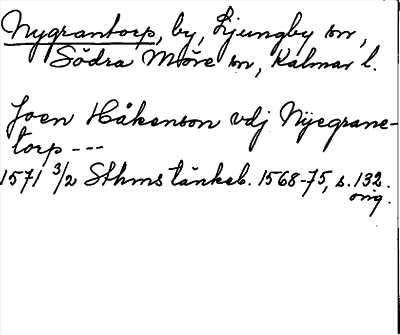 Nygrantorp, by, Ljungby sn,
Södra Möre sn, Kalmar l.
Joen Håkenson vdj Nyegrane-
torp ---
1571 3/2 Sthms tänkeb. 1568-75, s. 132.
orig.